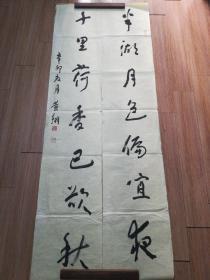 半湖月色偏宜夜
十里荷香已欲秋
辛卯元月